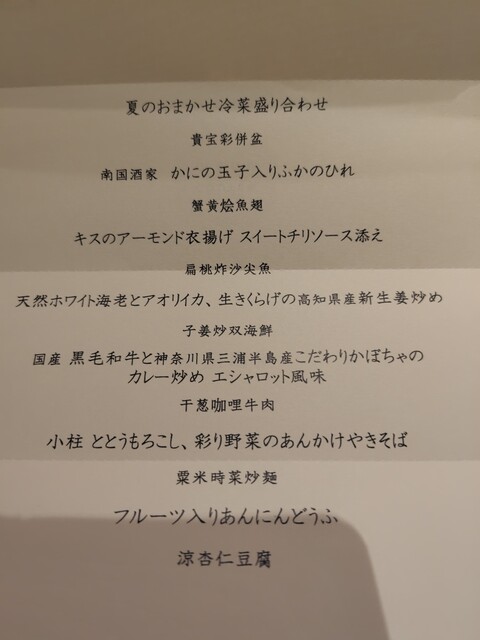 夏のおまかせ冷菜盛り合わせ
貴宝彩併盆
南国酒家 かにの玉子入りふかのひれ
蟹黄烩魚翅
キスのアーモンド衣揚げ スイートチリソース添え
扁桃炸沙尖魚
天然ホワイト海老とアオリイカ、生きくらげの高知県産新生姜炒め
子姜炒双海鮮
国産 黒毛和牛と神奈川県三浦半島産こだわりかぼちゃの
カレー炒め エシャロット風味
干葱咖哩牛肉
小柱 ととうもろこし、彩り野菜のあんかけやきそば
粟米時菜炒麺
フルーツ入りあんにんどうふ
涼杏仁豆腐